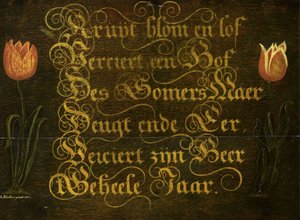 Kruyt blom en lof
Verciert een Hof
Des Somers Maer
Deugt ende Eer,
Verciert zijn Heer
Geheele Jaar.